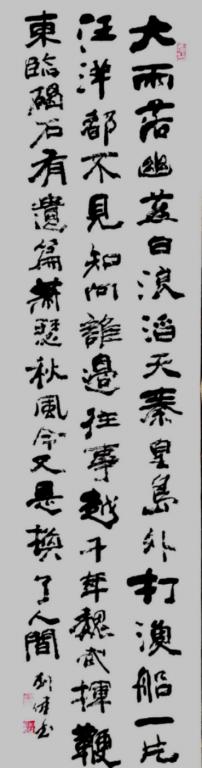 大雨落幽燕白浪滔天秦皇島外打漁船一片
汪洋都不見知向誰邊往事越千年魏武揮鞭
東臨碣石有遺篇蕭瑟秋風今又是換了人間
書